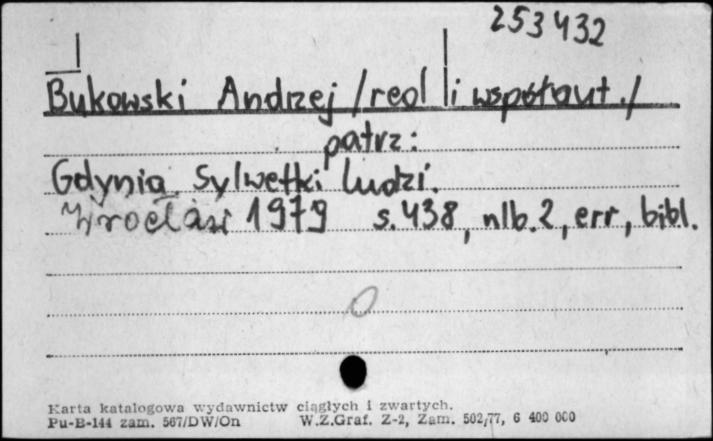 253432
Bukowski Andrzej /red i współaut./
patrz:
Gdynia. Sylwetki ludzi.
1979 s. 438, nlb. 2, err, bibl.
Karta katalogowa wydawnictw ciągłych i zwartych.
Pu-B-144 zam. 567/DW/On W.Z.Graf. Z-2, Zam. 502/77, 6 400 000